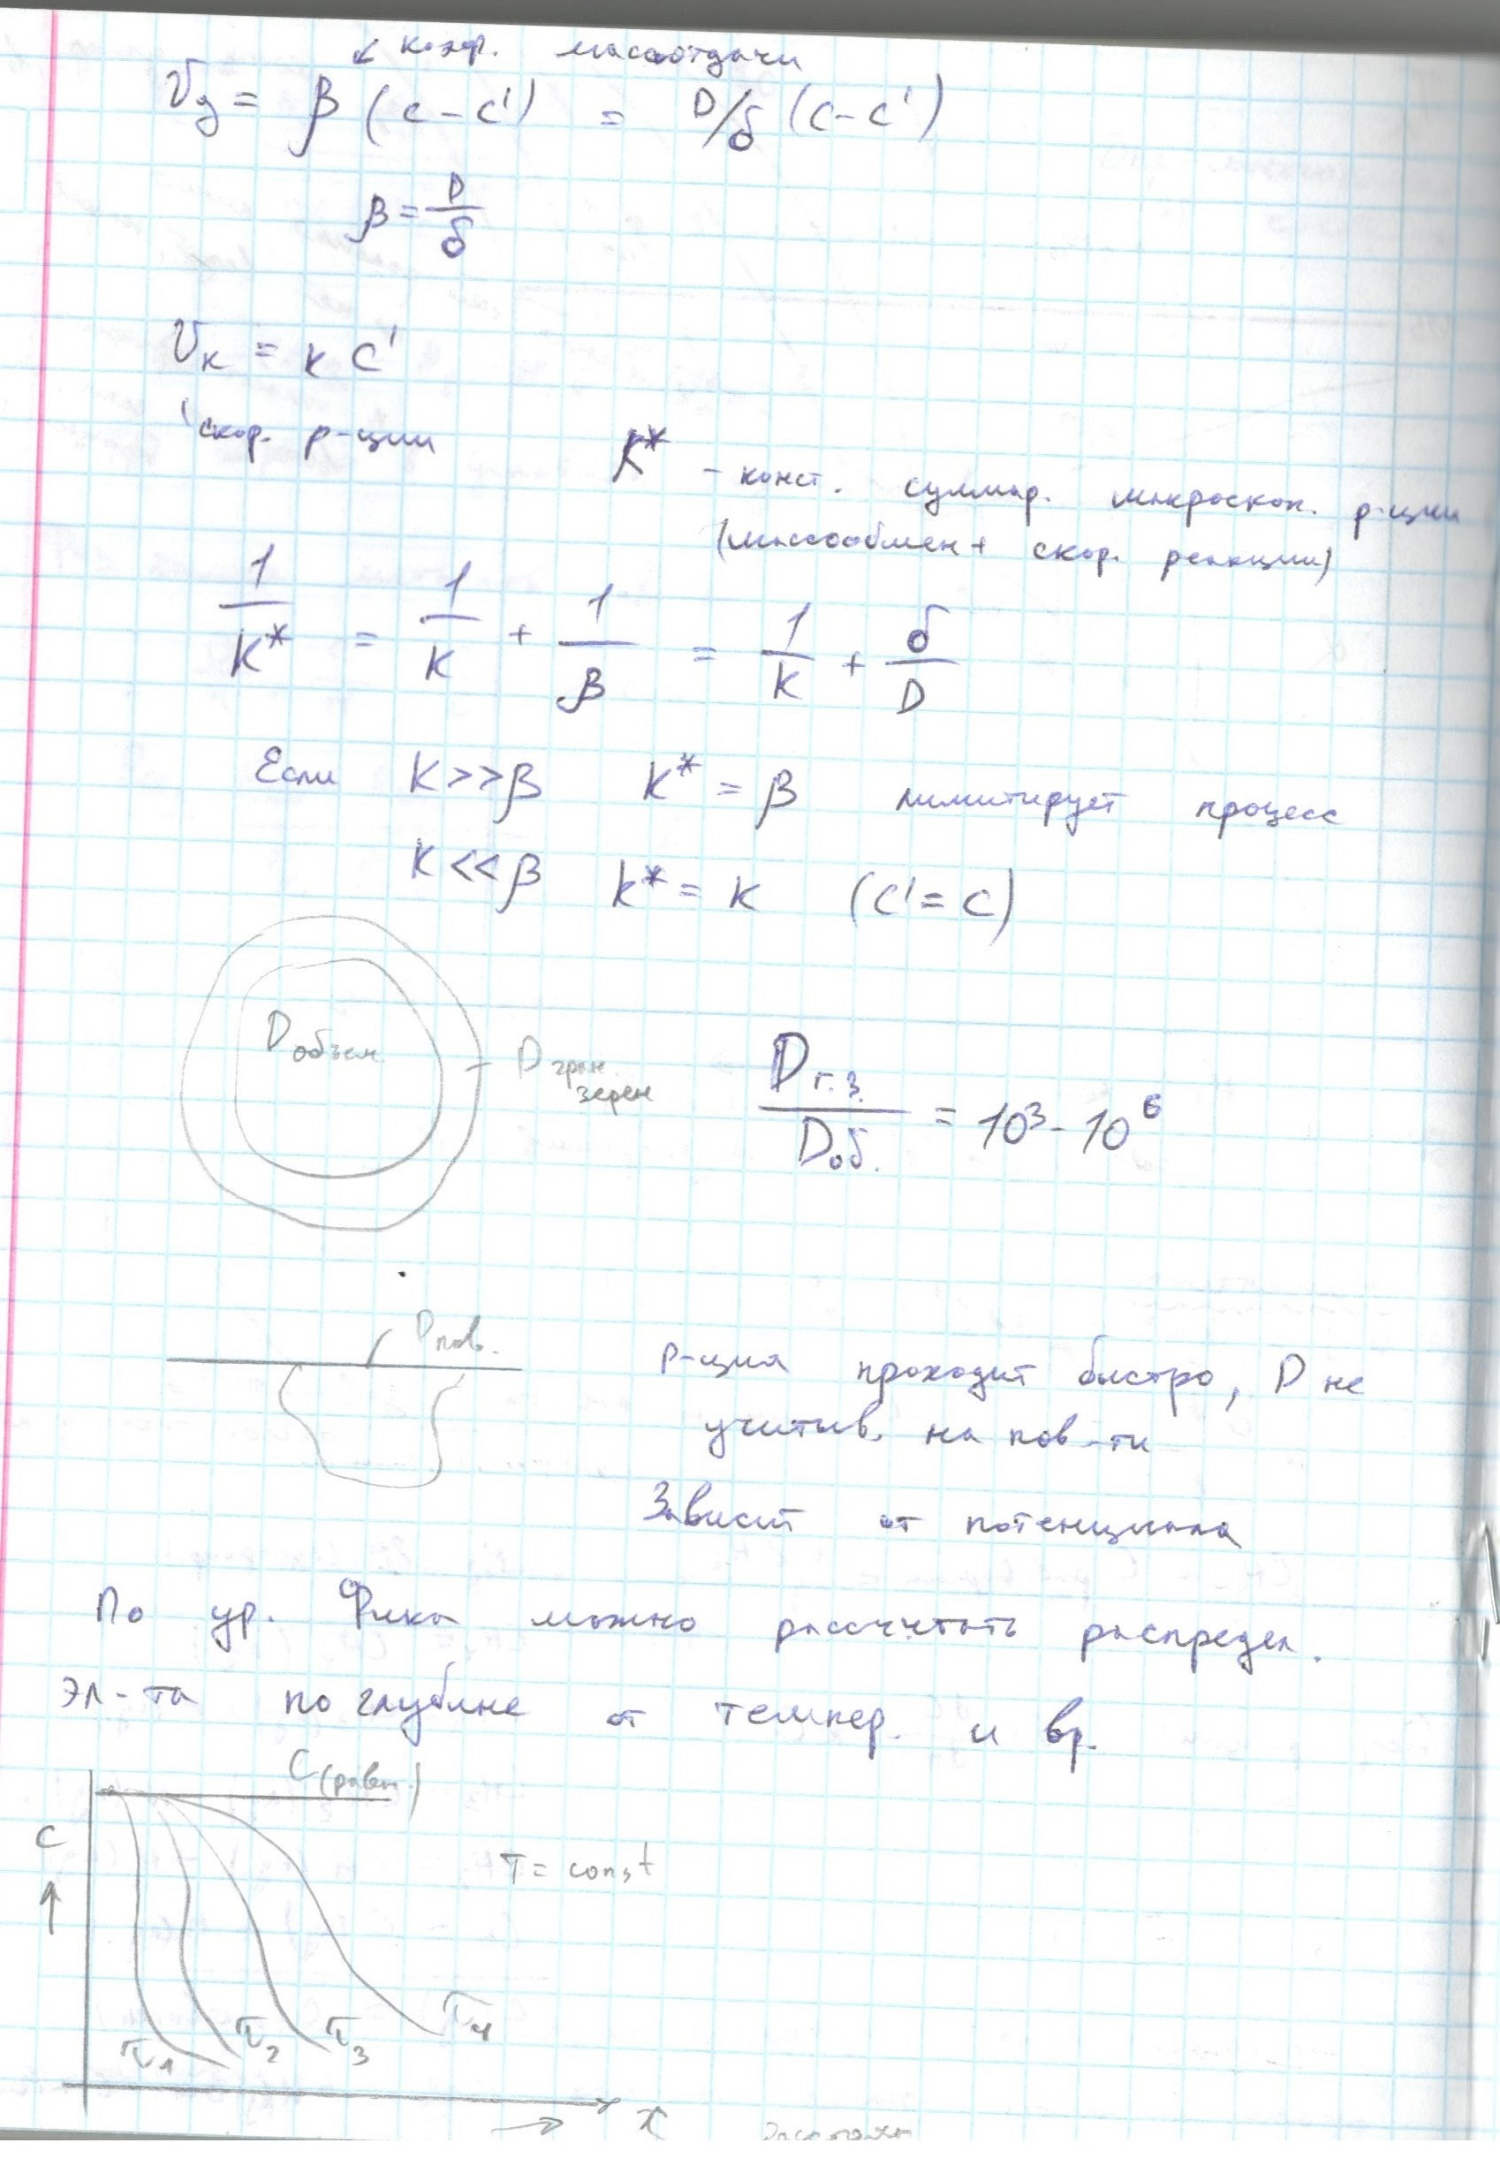 ↙ коэф. массоотдачи
V_д = β (c - c') = D/δ (c - c')
β = D/δ
V_к = k c'
скор. р-ции
K* - конст. суммар. макроскоп. р-ции
(массообмен + скор. реакции)
1/K* = 1/K + 1/β = 1/K + δ/D
Если K >> β K* = β лимитирует процесс
K << β K* = K (c' = c)
D объем. D гран. зерен
D г.з. / D об. = 10³ - 10⁶
D пов.
р-ция проходит быстро, D не
учитыв. на пов-ти
Зависит от потенциала
По ур. Фика можно рассчитать распредел.
эл-та по глубине от темпер. и вр.
C (равн.)
c ↑
T = const
τ1 τ2 τ3 τ4
→ x